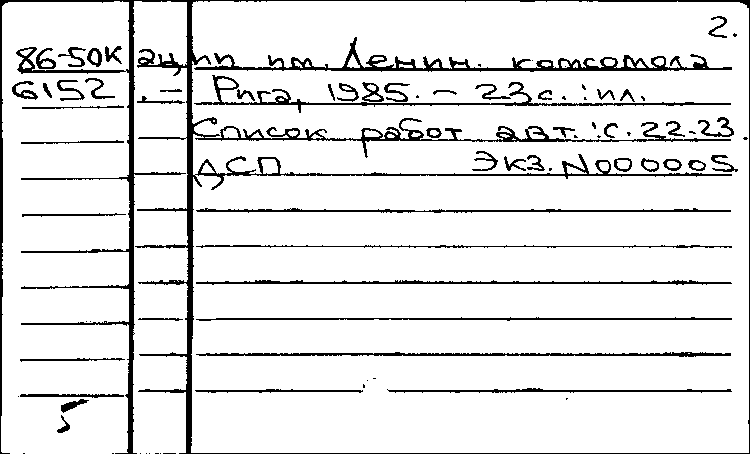 2.
86-50к ации им. Ленин. комсомола
6152 . – Рига, 1985. – 23 с. : ил.
Список работ авт. : с. 22-23.
ДСП. Экз. N000005.
5